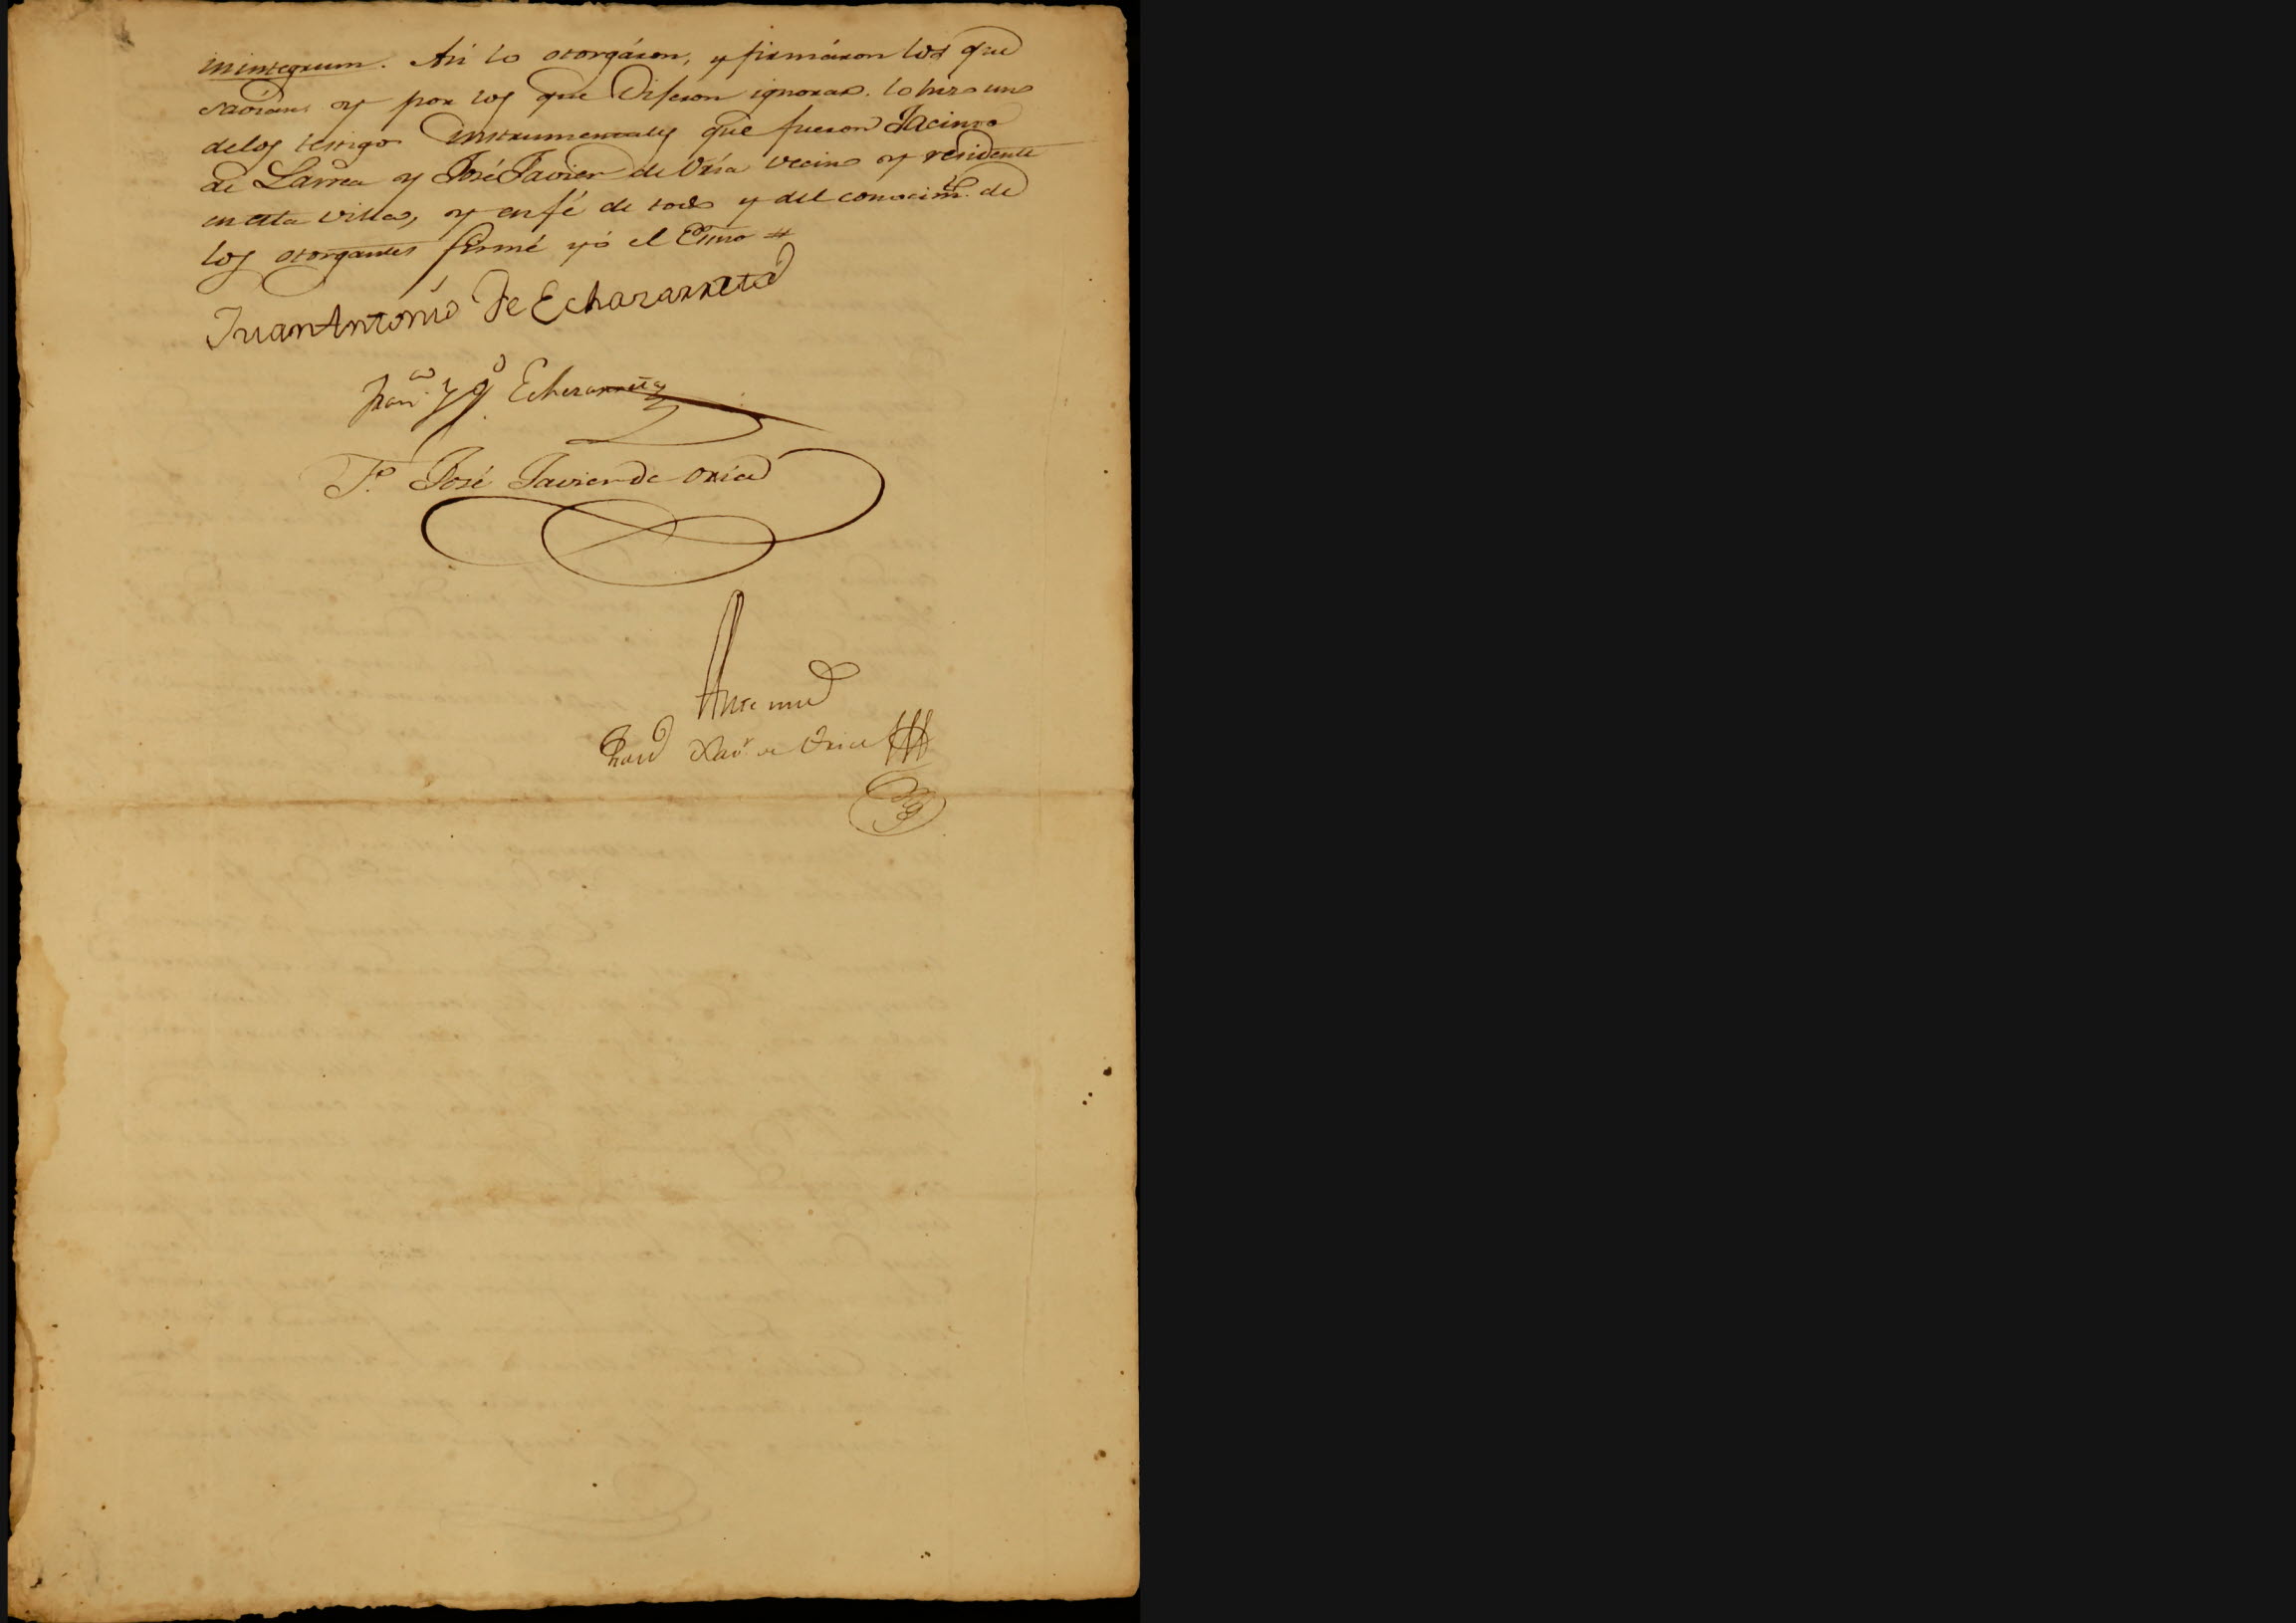 inintegrum. Asi lo otorgáron, y firmáron los que
savian y por los que Dijeron ignorar. lo hizo uno
delos testigos instrumentales que fueron Jacinto
de Larrea y José Javier de Oria vecino y residente
en esta villa, y en fé de todo y del conocim.to de
los otorgantes firmé yó el Esno #
Juan Antonio de Echazarreta
Fran.co Yg.o Echezarreta
T.o José Javier de Oria
Ante mi
Xav.r de Oria